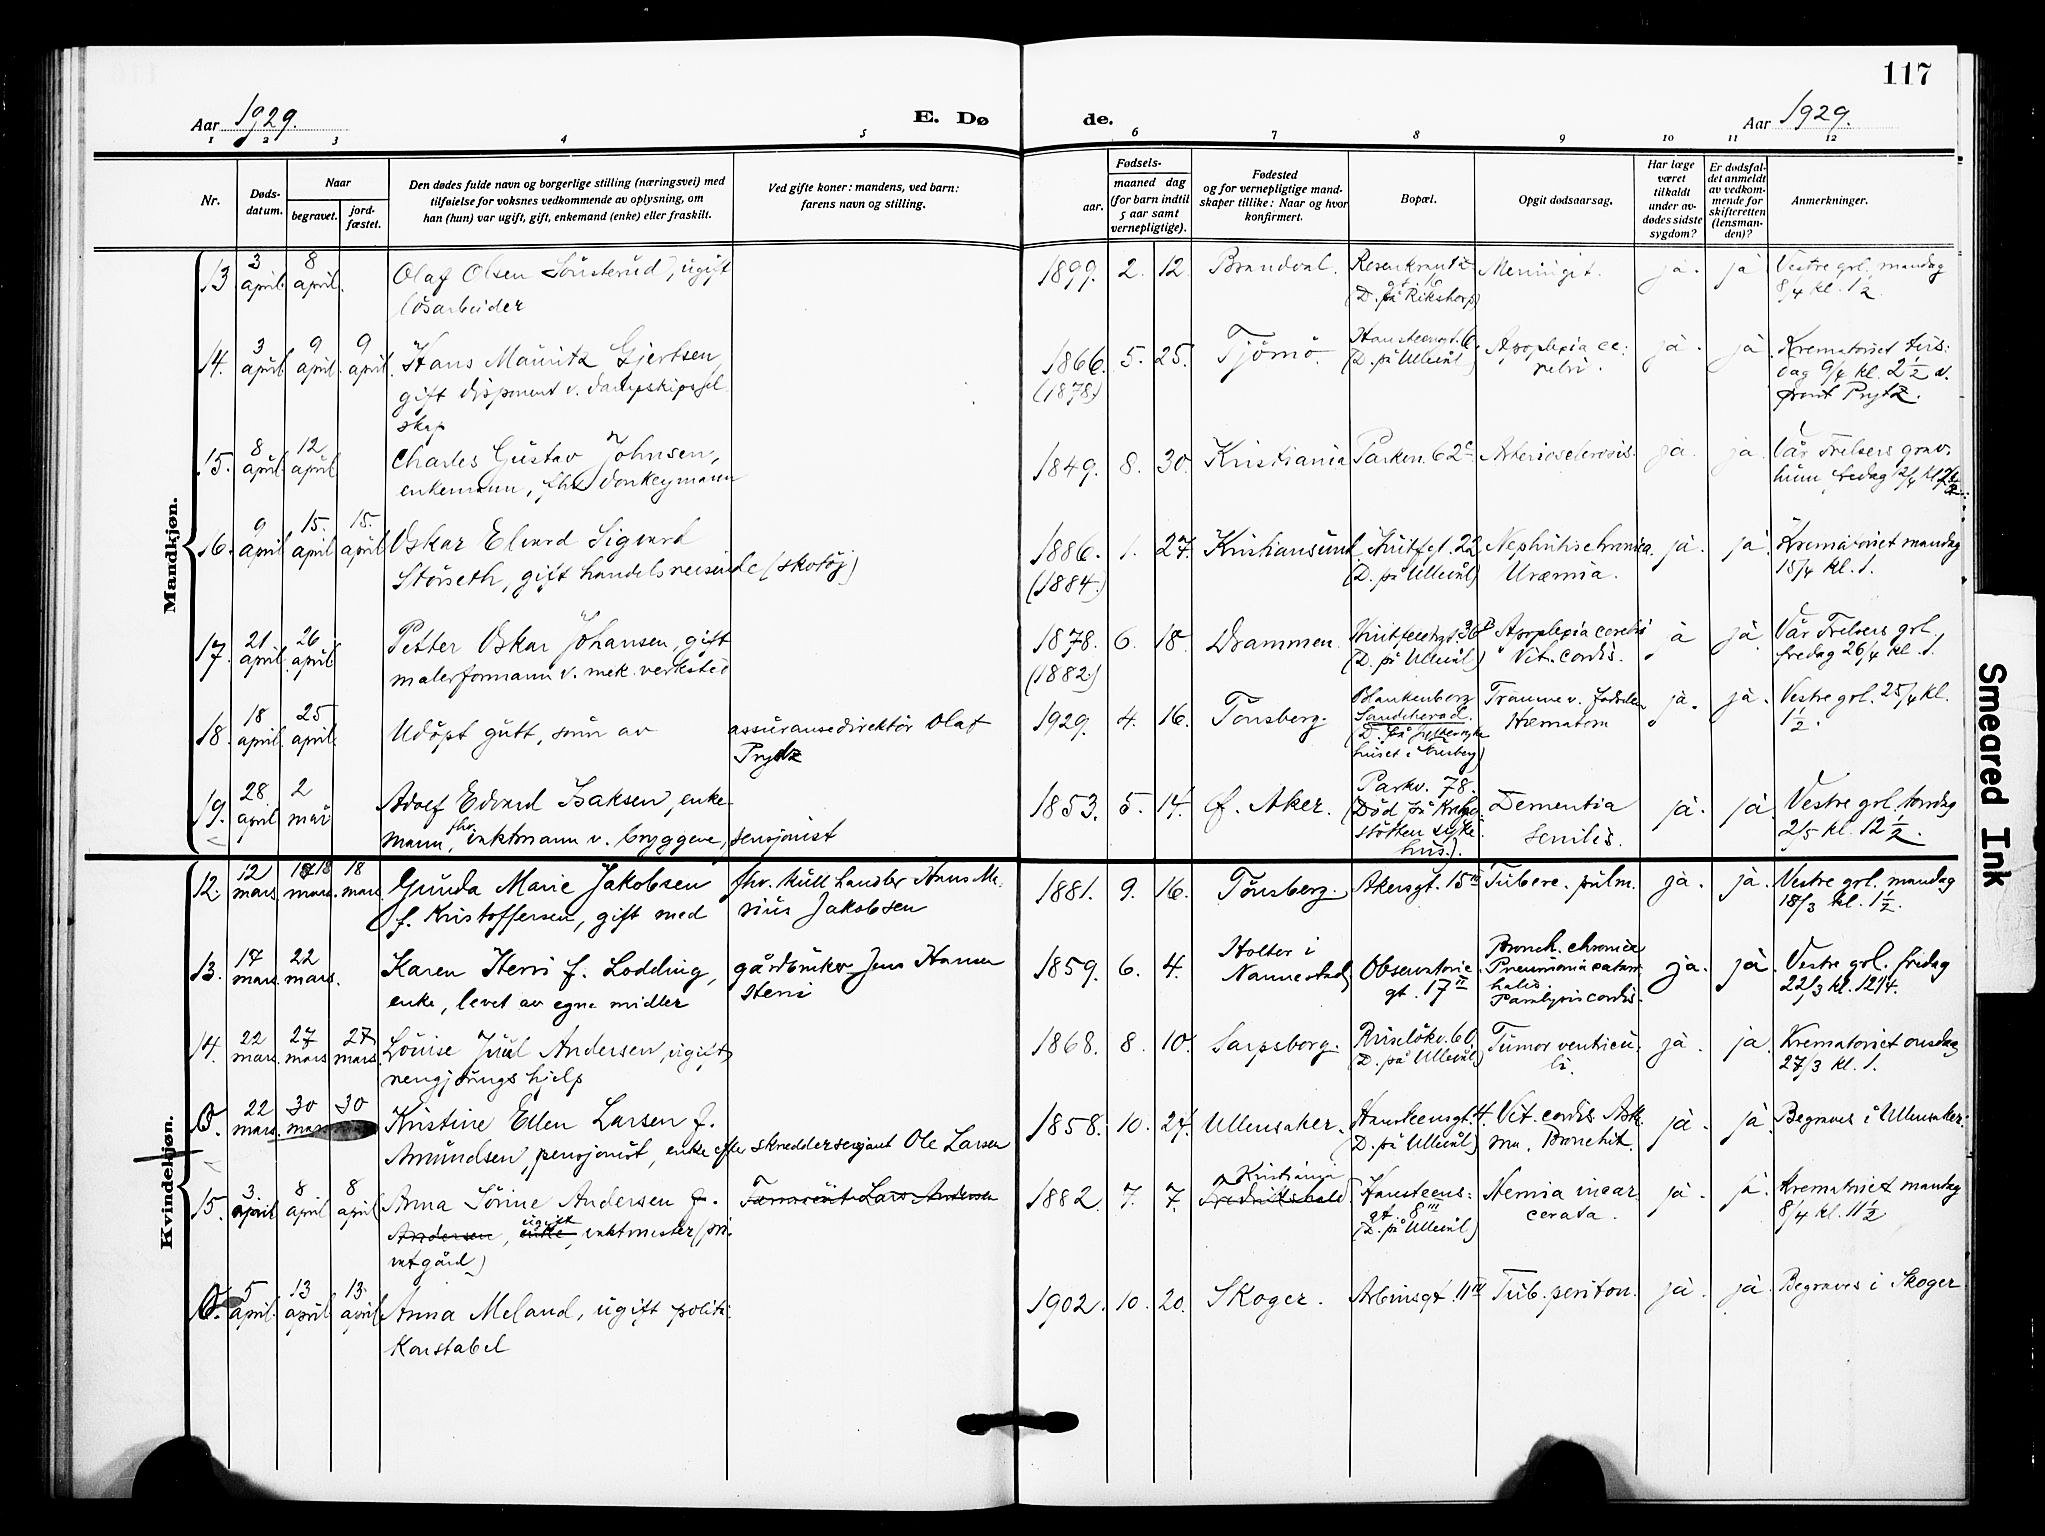 117
Aar 1929.
E. Dø
de.
Aar 1929.
1 2 3 4 5 6 7 8 9 10 11 12
Nr.
Døds-
datum.
Naar
begravet.
jord-
fæstet.
Den dødes fulde navn og borgerlige stilling (næringsvei) med
tilføielse for voksnes vedkommende av oplysning, om
han (hun) var ugift, gift, enkemand (enke) eller fraskilt.
Ved gifte koner: mandens, ved barn:
farens navn og stilling.
Fødsels-
aar.
maaned dag
(for barn indtil
5 aar samt
vernepligtige).
Fødested
og for vernepligtige mand-
skaper tillike: Naar og hvor
konfirmert.
Bopæl.
Opgit dødsaarsag.
Har læge
været
tilkaldt
under av-
dødes sidste
sygdom?
Er dødsfal-
det anmeldt
av vedkom-
mende for
skifteretten
(lensman-
den)?
Anmerkninger.
Mandkjøn.
13 3 april 8 april. Olaf Olsen Sönsterud, ugift
løsarbeider
1899. 2. 12. Brandval. Rosenkrantz
gt. 16
(D. på Rikshosp)
Meningit. ja. ja Vestre grl. mandag
8/4 kl. 1 1/2.
14. 3 april 9 april. 9 april Hans Mauritz Gjertsen,
gift disponent v. dampskipssel
skap
1866. (1878) 5. 25. Tjömö. Hansteensgt. 6
(D. på Ullevål)
Apoplexia ce:
rebri.
ja. ja Krematoriet tirs:
dag 9/4 kl. 2 1/2 v.
prost Prytz.
15. 8 april 12 april Charles Gustav Johnsen,
enkemann, fhv. donkeymann
1849. 8. 30. Kristiania Parkv. 62 c. Arteriosclerosis. ja. ja. Vår Frelsers grav
lund fredag 12/4 kl.
16. 9 april 15. april 15. april Oskar Edvard Sigvard
Störseth, gift handelsreisende (skotöj)
1886. (1884.) 1. 27. Kristiansund Huitfel. 22
(D. på Ullevål)
Nephritis chronica
Uræmia.
ja. ja. Krematoriet mandag
15/4 kl. 1.
17. 21 april. 26 april Petter Oskar Johansen, gift
malerformann v. mek. verksted
1878. (1882) 6. 18. Drammen. Huitfeldtgt. 36
(D. på Ullevål)
Apoplexia cerebri
Vit. cordis.
ja ja. Vår Frelsers grl.
fredag 26/4 kl. 1.
18. 18 april. 25 april Udöpt gutt, sönn av assuransedirektör Olaf
Prytz
1929. 4. 16. Tönsberg. Blankenborg
Sandeherad.
(D. på fylkessyke
huset i Tönsberg)
Traume v. fødselen
Hæmatom
ja. ja. Vestre grl. 25/4 kl.
1 1/2.
19. 28 april 2 mai Adolf Edvard Isaksen, enke-
mann, fhv. vaktmann v. bryggeve, pensjonist
1853. 5. 14. f. Aker. Parkv. 78.
(Död på Krohg
stötten syke
hus.).
Dementia
senilis.
ja. ja. Vestre grl. torsdag
2/5 kl. 12 1/2.
Kvindekjøn.
12. 12 mars 18 mars. 18 mars Gunda Marie Jakobsen
f. Kristoffersen, gift med fhv. kullhandler Hans Ma-
rius Jakobsen
1881. 9. 16. Tönsberg. Akersgt. 15 III Tuberc. pulm. ja. ja. Vestre grl. mandag
18/3 kl. 1 1/2.
13. 17 mars. 22 mars. Karen Steni f. Lodding,
enke, levet av egne midler gårdbruker Jens Hansen
Steni
1859. 6. 4. Holter i
Nannestad
Observatorie
gt. 17 II
Bronch. chronica
Pneumonia catarr
halis
Paralysis cordis.
ja. ja. Vestre grl. fredag
22/3 kl. 12 1/4.
14. 22 mars. 27 mars 27 mars. Louise Juul Andersen, ugift,
rengjöringshjelp
1868. 8. 10. Sarpsborg. Ruselökv. 60
(D. på Ullevål)
Tumor ventricu:
li.
ja. ja. Krematoriet onsdag
27/3 kl. 1.
0. 22 mars. 30 mars 30 Kristine Ellen Larsen f.
Amundsen, pensjonist, enke efter skreddersersjant Ole Larsen
1858. 10. 27. Ullensaker. Hansteensgt. 4.
(D. på Ullevål)
Vit. cordis Ast
ma. Bronchit.
ja. ja. Begraves i Ullensaker.
15. 3. april 8 april 8 april Anna Sörine Andersen f.
Andersen, ugift enke, vaktmester (pri-
vatgård)
Tömmermt Lars Andersen
1882. 7. 7. Kristiania
Fredrikshald
Hansteens:
gt. 8 III
(D. på Ullevål)
Hernia incar:
cerata.
ja. ja. Krematoriet mandag
8/4 kl. 11 1/2
0. 5 april. 13 april 13. april Anna Meland, ugift politi:
konstabel
1902. 10. 20. Skoger. Arbinsgt. 11 IV Tub. periton. ja. ja. Begraves i Skoger
Smeared Ink